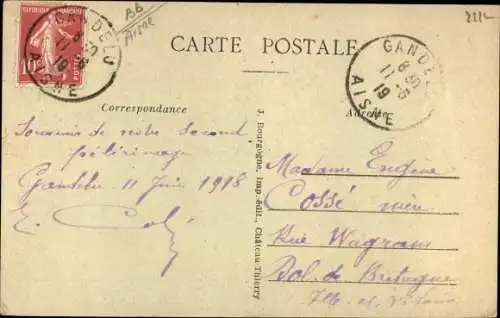 GANDELU
8-50
11-6
19
AISNE
BB
Aisne
CARTE POSTALE
GANDELU
8-50
11-6
19
AISNE
Correspondance
Adresse
Souvenir de notre second
pèlerinage
Gandelu 11 Juin 1918
J. Bourgogne, imp.-édit., Château-Thierry
Madame Eugène
Cossé
Rue Wagram
Dol-de Bretagne
Ille et Vilaine